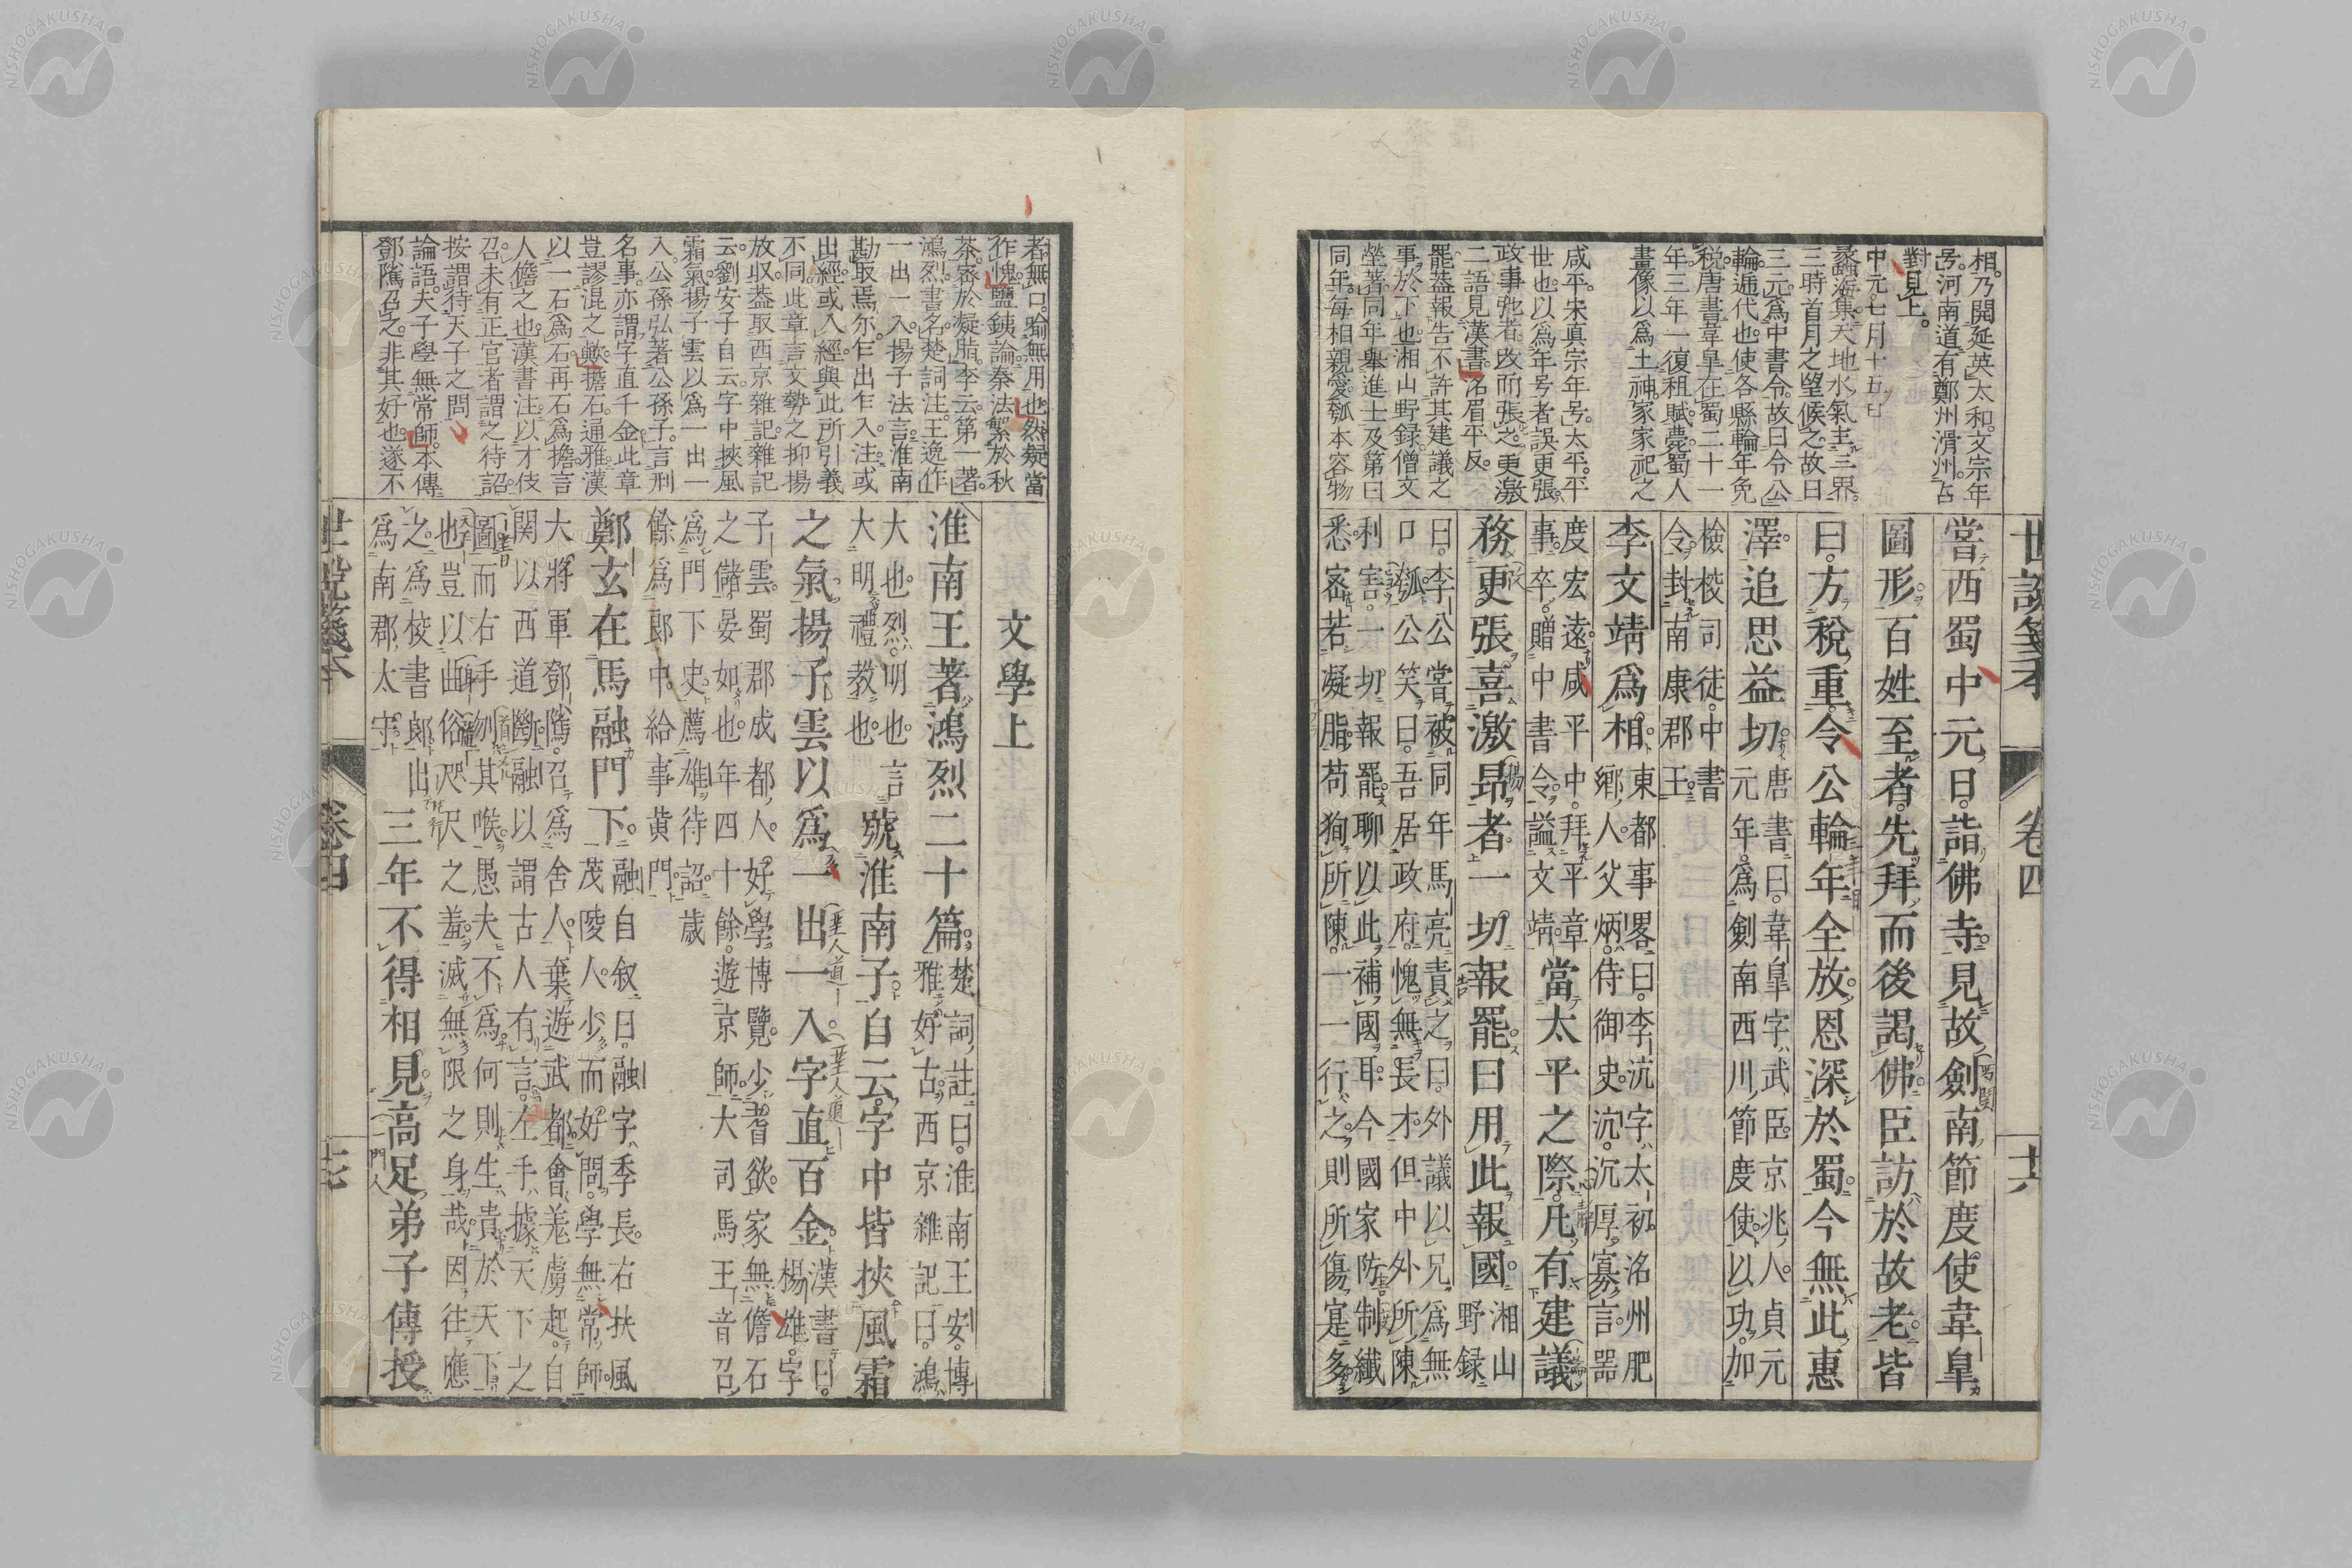 世說箋本 卷四 十六
相。乃開延英太和。文宗年
号。河南道有鄭州滑州。占
對見上。
中元。七月十五日
蠡海集天地水氣主三界。
三時首月之望候之故曰
三元。為中書令。故曰令公
輪。逓代也。使各縣輪年免
稅。唐書韋皐在蜀二十一
年。三年一復租賦。薨蜀人
畫像以為土神。家家祀之
咸平。宋真宗年号。太平。平
世也。以為年号者誤。更張。
政事弛者。改而張之。更激
二語見漢書。洺眉平反。
罷蓋報告不許其建議之
事於下也。湘山野録。僧文
瑩著。同年舉進士及第曰
同年。每相親愛。瓠本容物
當西蜀中元日。詣佛寺。見故劍南節度使韋皐
圖形。百姓至者。先拜而後謁佛。臣訪於故老。皆
曰。方稅重。令公輪年全放。恩深於蜀。今無此惠
澤。追思益切。唐書曰。韋皐字武臣。京兆人。貞元
元年。為劍南西川節度使。以功加
檢校司徒。中書
令。封南康郡王。
李文靖為相。東都事畧曰。李沆字太初。洺州肥
鄉人。父炳。侍御史。沆。沉厚寡言。器
度宏遠。咸平中。拜平章
事。卒。贈中書令。謚文靖。當太平之際。凡有建議
務更張喜激昻者。一切報罷。曰用此報國。湘山
野録
曰。李公嘗被同年馬亮責之曰。外議以兄為無
口瓠。公笑曰。吾居政府。愧無長才。但中外所陳
利害。一切報罷。聊以此補國耳。今國家防制纖
悉密若凝脂。苟狥所陳。一一行之。則所傷寔多。
者無口。喻無用也。然凝當
作愧。鹽鉄論秦法繁於秋
荼。密於凝脂。李云。第一著。
鴻烈。書名。楚詞注。王逸作
一出一入。揚子法言。淮南
勘取焉尔。乍出乍入。注或
出經。或入經。與此所引義
不同。此章言文勢之抑揚
放収。蓋取西京雜記。雜記
云。劉安子自云。字中挾風
霜氣。揚子雲以為一出一
入。公孫弘著公孫子。言刑
名事。亦謂字直千金。此章
豈謬混之歟。擔石。通雅漢
以一石為石。再石為擔。言
人儋之也。漢書注。以才伎
召。未有正官者謂之待詔
按謂待天子之問。
論語。夫子學無常師。本傳
鄧隲召之。非其好也。遂不
文學上
淮南王著鴻烈二十篇。楚詞註曰。淮南王安。博
雅好古。西京雜記曰。鴻
大也。烈。明也。言
大明禮教也。號淮南子。自云。字中皆挾風霜
之氣。揚子雲以為一出一入。字直百金。漢書曰。
楊雄。字
子雲。蜀郡成都人。好學博覽。少耆欲。家無儋石
之儲。晏如也。年四十餘。遊京師。大司馬王音召
為門下史。薦雄待詔。歲
餘為郎中。給事黃門。
鄭玄在馬融門下。融自叙曰。融字季長。右扶風
茂陵人。少而好問。學無常師。
大將軍鄧隲。召為舍人。棄遊武都。會羌虜起。自
関以西道斷。融以謂古人有言。左手據天下之
圖。而右手刎其喉。愚夫不為。何則生貴於天下
也。豈以曲俗咫尺之羞。滅無限之身哉。因往應
之。為校書郎。出
為南郡太守。三年不得相見。高足弟子傳授
世說箋本 卷四 十七
NISHOGAKUSHA